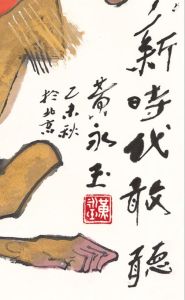 新時代敢聽
黃永玉
乙未秋
於北京